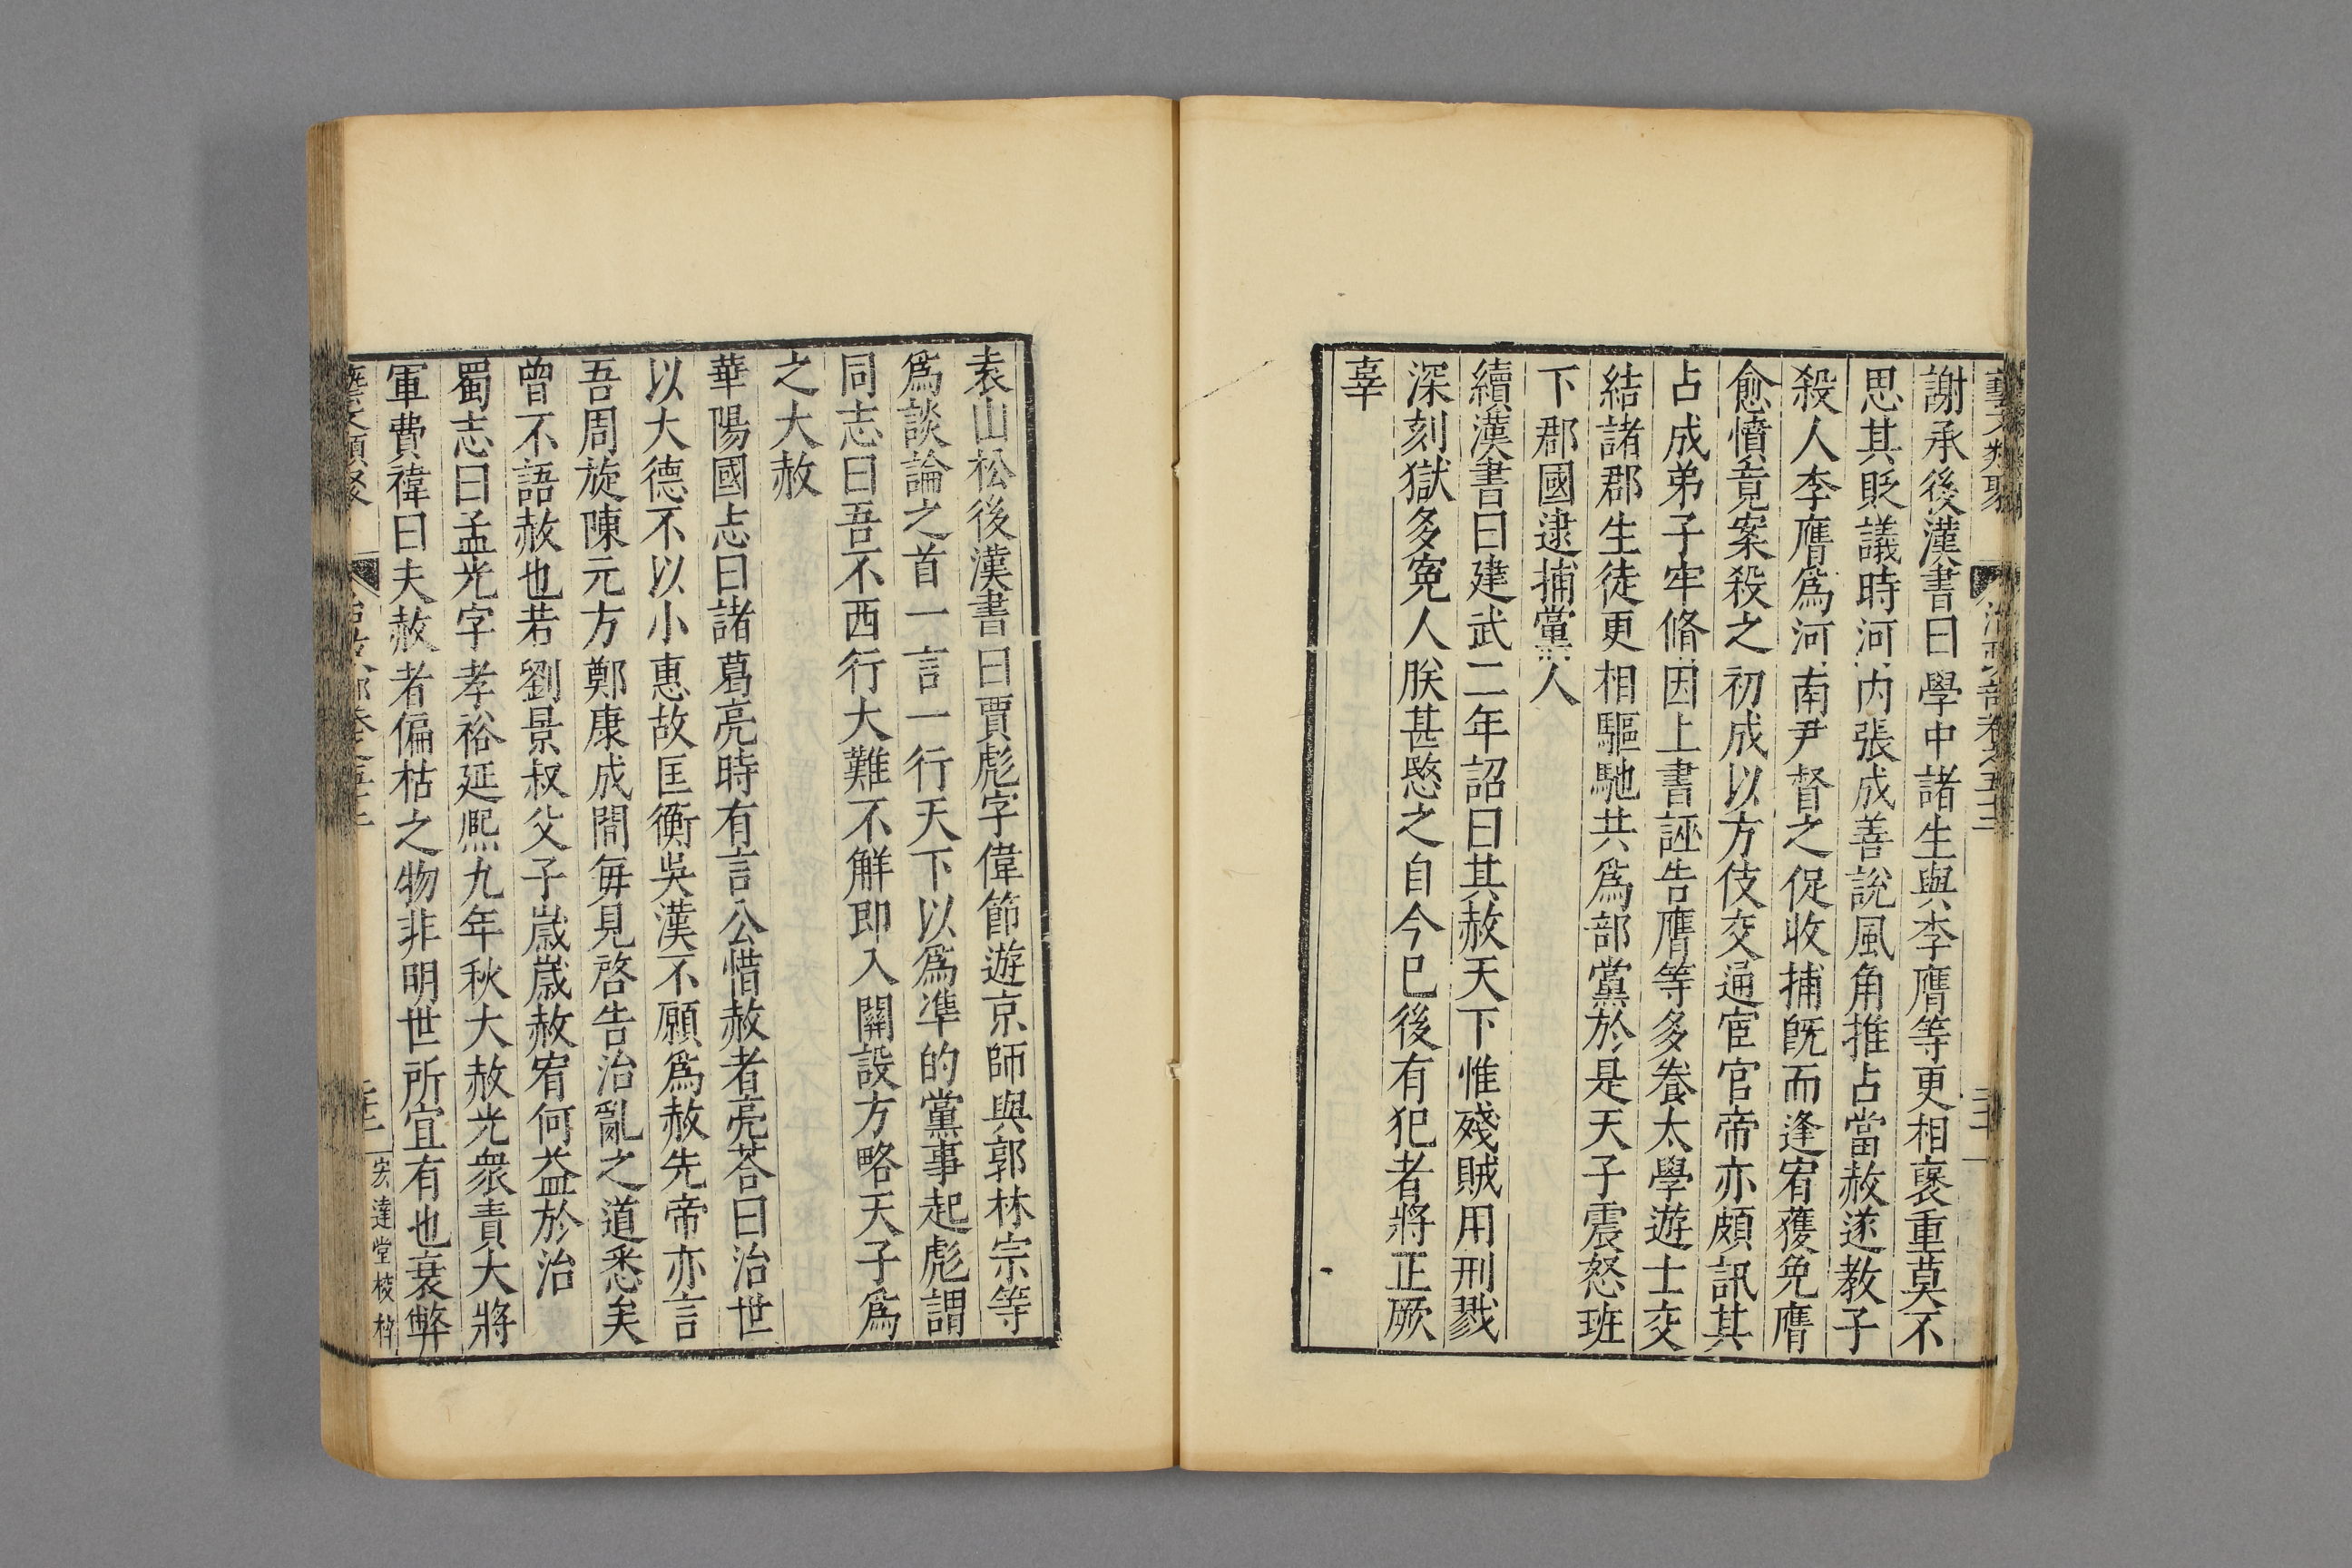 藝文類聚 治政部卷之五十二 三十一
謝承後漢書曰學中諸生與李膺等更相襃重莫不
思其貶議時河內張成善說風角推占當赦遂教子
殺人李膺爲河南尹督之促收捕旣而逢宥獲免膺
愈憤竟案殺之初成以方伎交通宦官帝亦頗訊其
占成弟子牢脩因上書誣告膺等多養太學遊士交
結諸郡生徒更相驅馳共爲部黨於是天子震怒班
下郡國逮捕黨人
續漢書曰建武二年詔曰其赦天下惟殘賊用刑戮
深刻獄多寃人朕甚愍之自今已後有犯者將正厥
辜
袁山松後漢書曰賈彪字偉節遊京師與郭林宗等
爲談論之首一言一行天下以爲準的黨事起彪謂
同志曰吾不西行大難不解即入關設方略天子爲
之大赦
華陽國志曰諸葛亮時有言公惜赦者亮荅曰治世
以大德不以小惠故匡衡吳漢不願爲赦先帝亦言
吾周旋陳元方鄭康成間每見啓告治亂之道悉矣
曾不語赦也若劉景叔父子歲歲赦宥何益於治
蜀志曰孟光字孝裕延熈九年秋大赦光衆責大將
軍費禕曰夫赦者偏枯之物非明世所宜有也衰弊
藝文類聚 宏達堂校梓